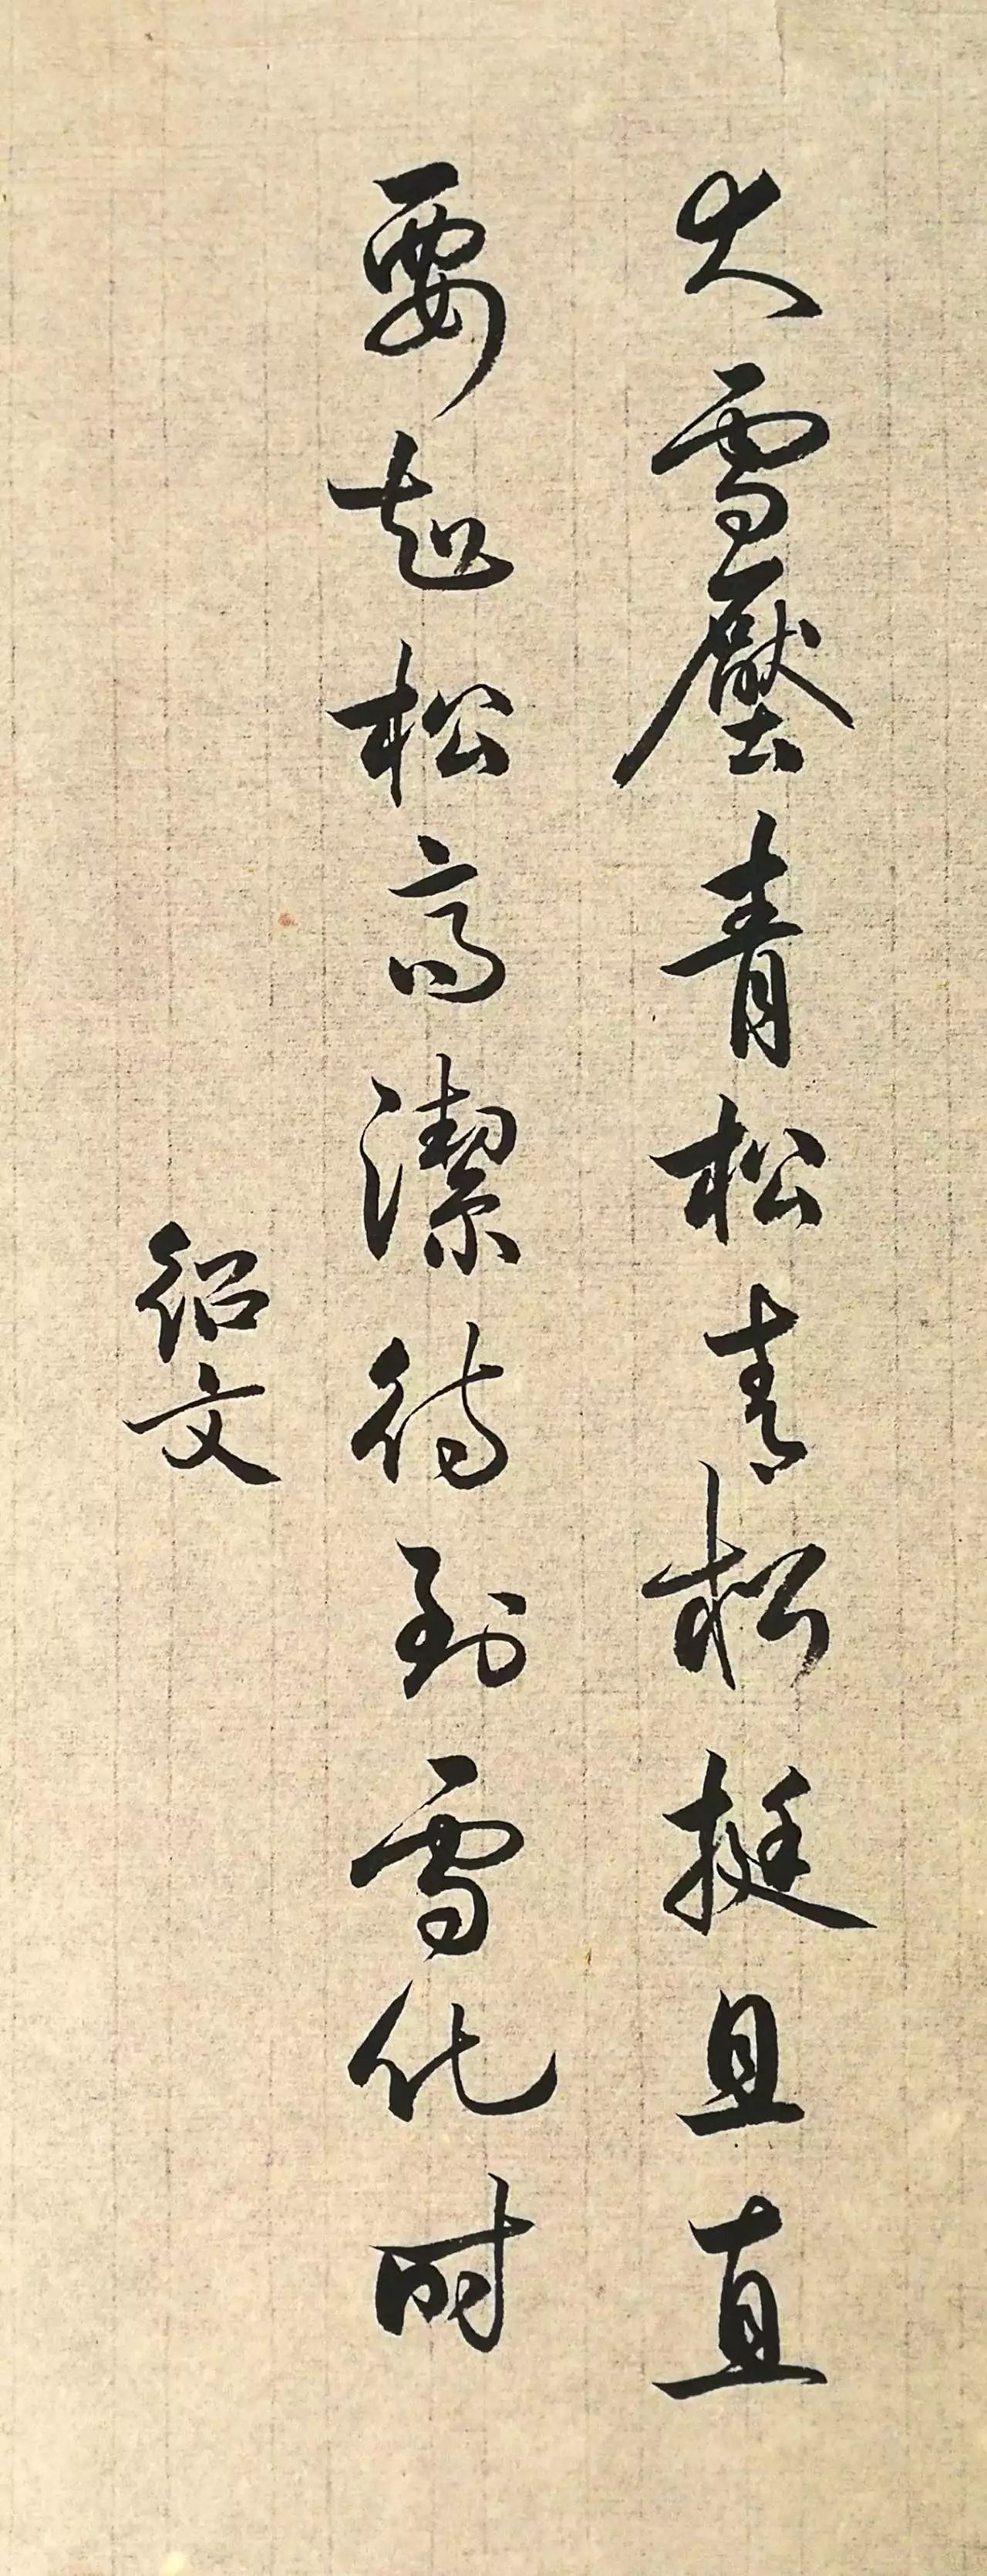 大雪壓青松青松挺且直
要知松高潔待到雪化时
紹文